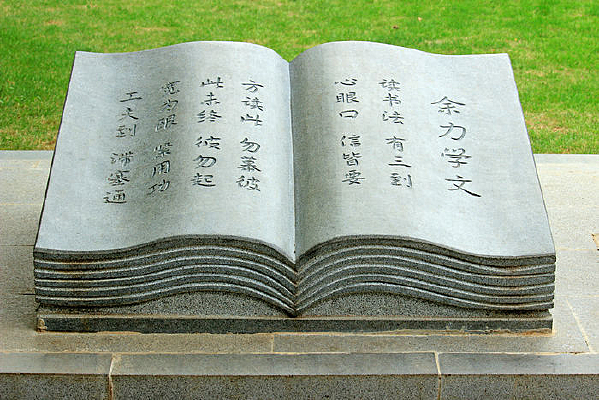 余力学文
读书法 有三到
心眼口 信皆要
方读此 勿慕彼
此未终 彼勿起
宽为限 紧用功
工夫到 滞塞通